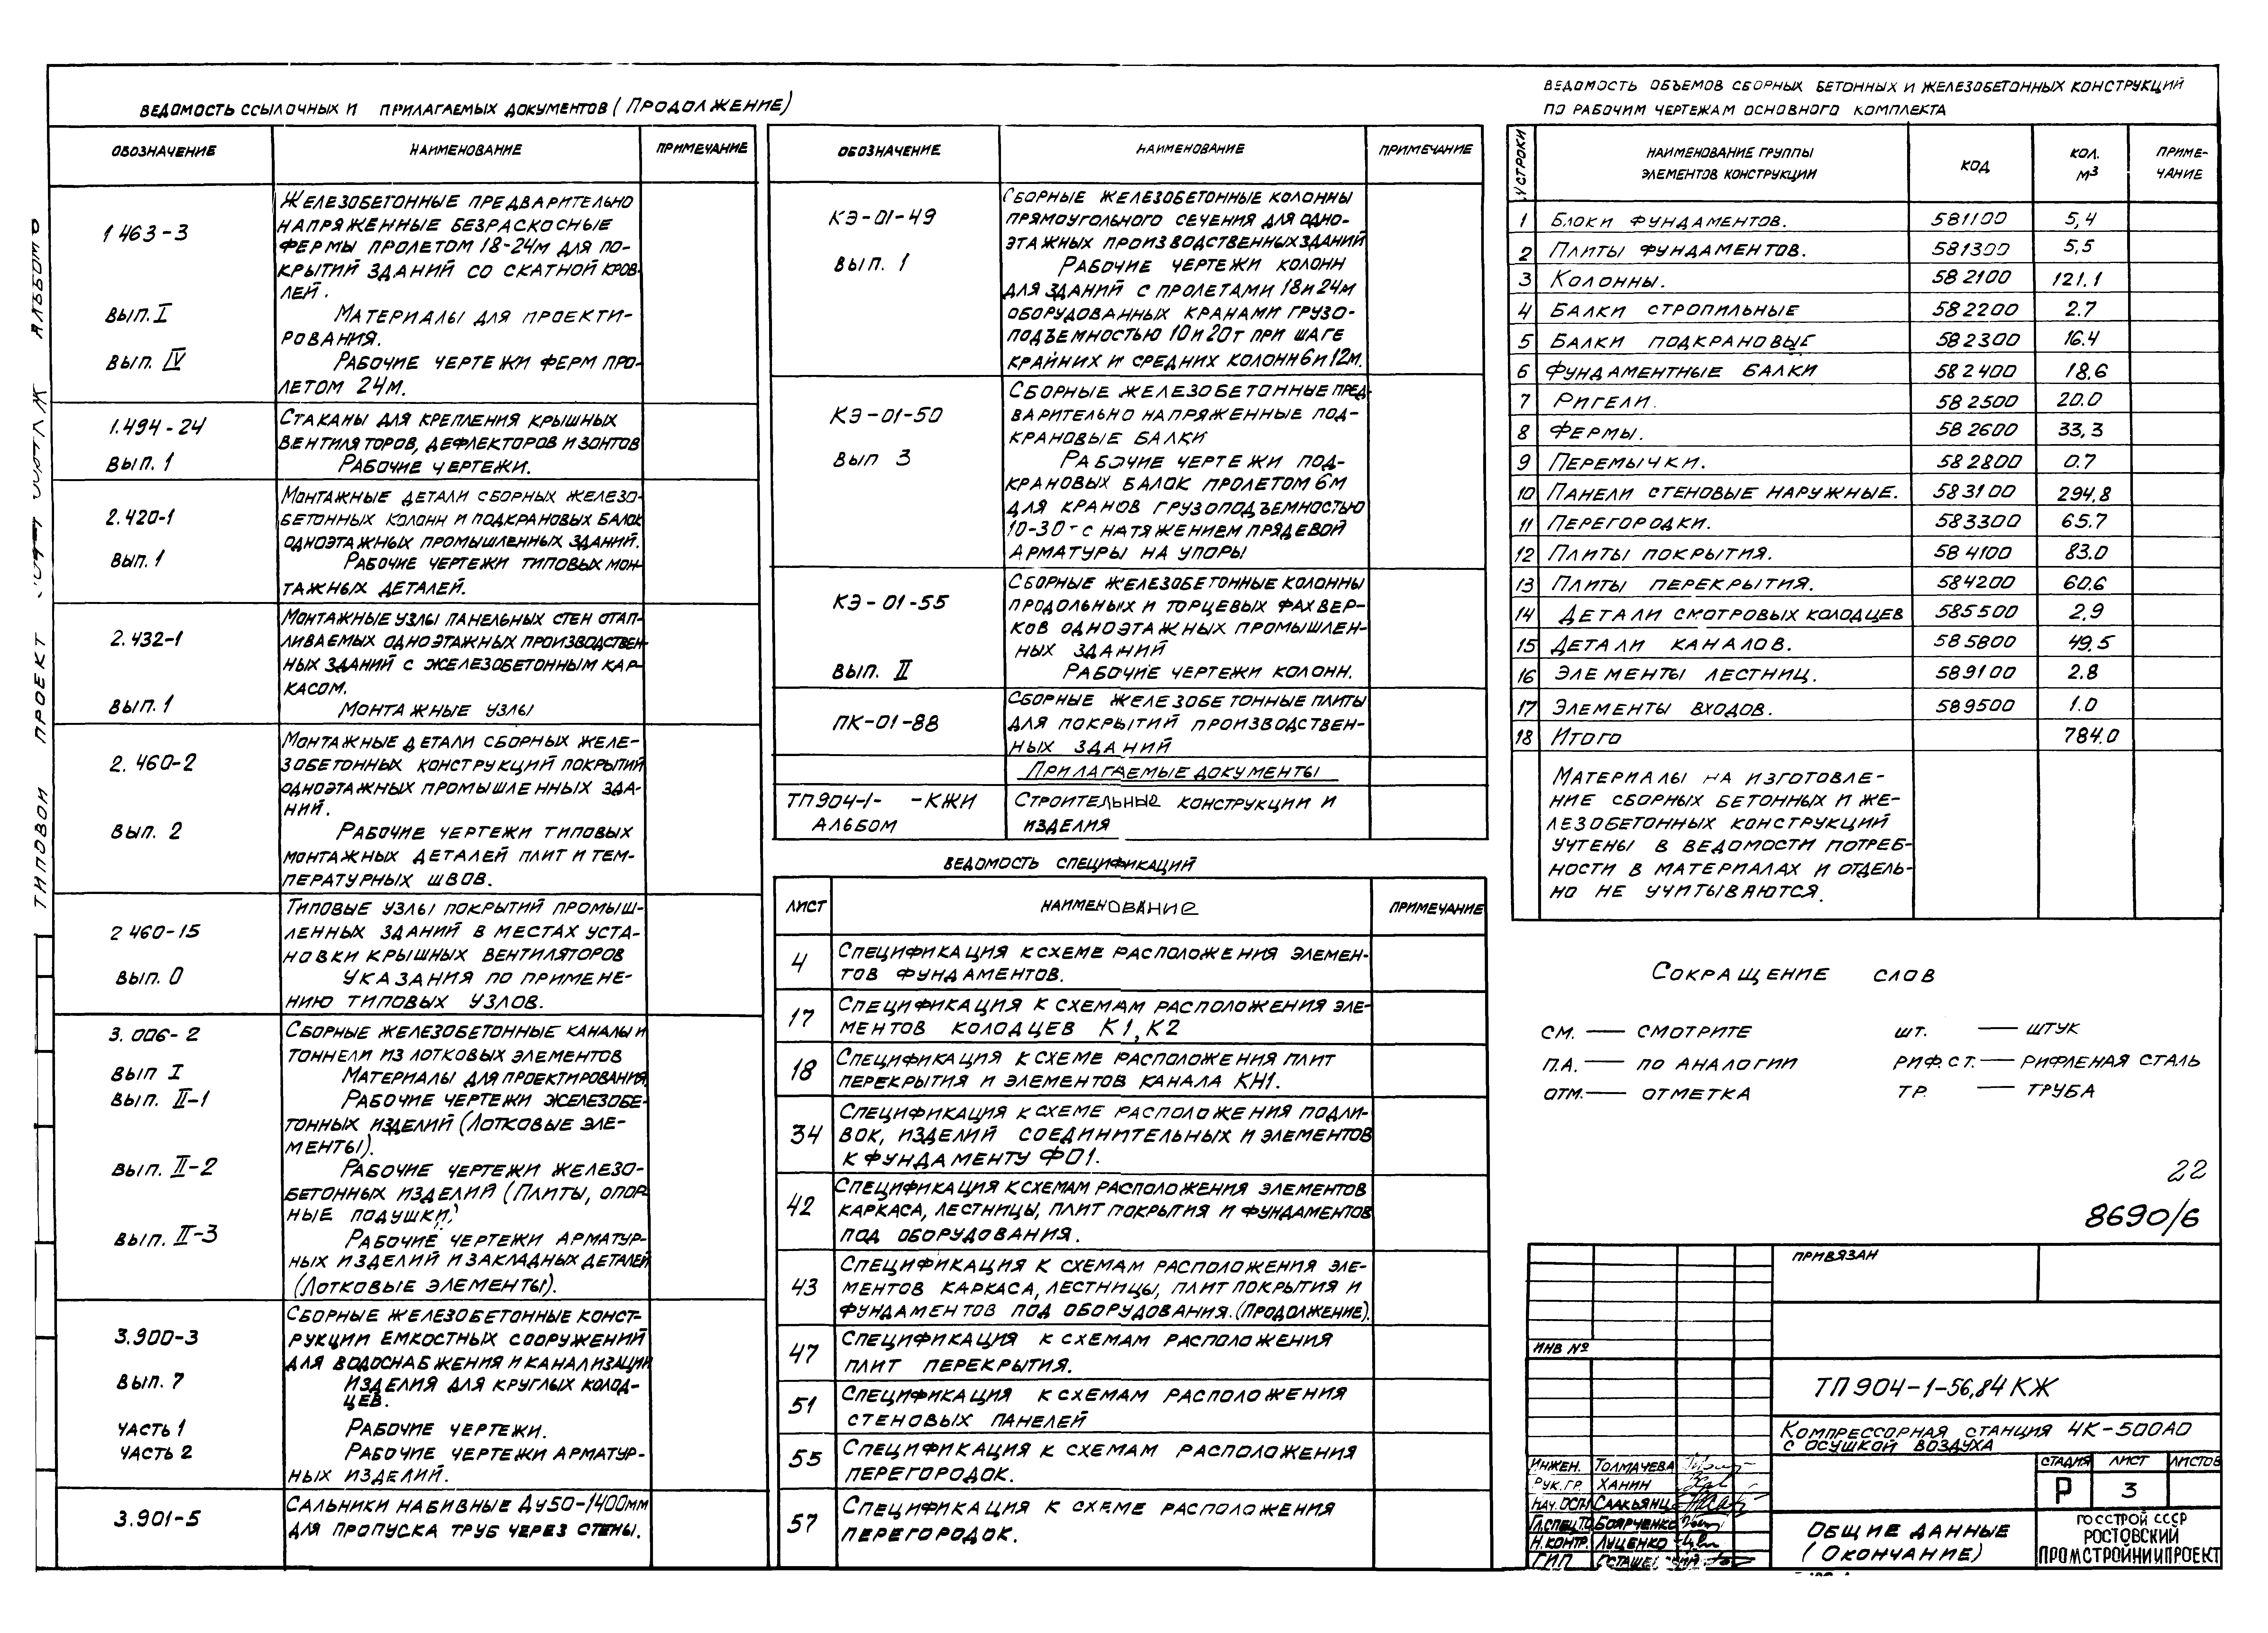 ВЕДОМОСТЬ ССЫЛОЧНЫХ И ПРИЛАГАЕМЫХ ДОКУМЕНТОВ (ПРОДОЛЖЕНИЕ)
ОБОЗНАЧЕНИЕ НАИМЕНОВАНИЕ ПРИМЕЧАНИЕ
1 463-3 ЖЕЛЕЗОБЕТОННЫЕ ПРЕДВАРИТЕЛЬНО
НАПРЯЖЕННЫЕ БЕЗРАСКОСНЫЕ
ФЕРМЫ ПРОЛЕТОМ 18-24М ДЛЯ ПО-
КРЫТИЙ ЗДАНИЙ СО СКАТНОЙ КРОВ-
ЛЕЙ.
ВЫП. I МАТЕРИАЛЫ ДЛЯ ПРОЕКТИ-
РОВАНИЯ.
ВЫП. IV РАБОЧИЕ ЧЕРТЕЖИ ФЕРМ ПРО-
ЛЕТОМ 24М.
1.494-24 СТАКАНЫ ДЛЯ КРЕПЛЕНИЯ КРЫШНЫХ
ВЕНТИЛЯТОРОВ, ДЕФЛЕКТОРОВ И ЗОНТОВ
ВЫП. 1 РАБОЧИЕ ЧЕРТЕЖИ.
2.420-1 МОНТАЖНЫЕ ДЕТАЛИ СБОРНЫХ ЖЕЛЕЗО-
БЕТОННЫХ КОЛОНН И ПОДКРАНОВЫХ БАЛОК
ОДНОЭТАЖНЫХ ПРОМЫШЛЕННЫХ ЗДАНИЙ.
ВЫП. 1 РАБОЧИЕ ЧЕРТЕЖИ ТИПОВЫХ МОН-
ТАЖНЫХ ДЕТАЛЕЙ.
2.432-1 МОНТАЖНЫЕ УЗЛЫ ПАНЕЛЬНЫХ СТЕН ОТАП-
ЛИВАЕМЫХ ОДНОЭТАЖНЫХ ПРОИЗВОДСТВЕН-
НЫХ ЗДАНИЙ С ЖЕЛЕЗОБЕТОННЫМ КАР-
КАСОМ.
ВЫП. 1 МОНТАЖНЫЕ УЗЛЫ
2. 460-2 МОНТАЖНЫЕ ДЕТАЛИ СБОРНЫХ ЖЕЛЕ-
ЗОБЕТОННЫХ КОНСТРУКЦИЙ ПОКРЫТИЙ
ОДНОЭТАЖНЫХ ПРОМЫШЛЕННЫХ ЗДА-
НИЙ.
ВЫП. 2 РАБОЧИЕ ЧЕРТЕЖИ ТИПОВЫХ
МОНТАЖНЫХ ДЕТАЛЕЙ ПЛИТ И ТЕМ-
ПЕРАТУРНЫХ ШВОВ.
2 460-15 ТИПОВЫЕ УЗЛЫ ПОКРЫТИЙ ПРОМЫШ-
ЛЕННЫХ ЗДАНИЙ В МЕСТАХ УСТА-
НОВКИ КРЫШНЫХ ВЕНТИЛЯТОРОВ
ВЫП. 0 УКАЗАНИЯ ПО ПРИМЕНЕ-
НИЮ ТИПОВЫХ УЗЛОВ.
3. 006-2 СБОРНЫЕ ЖЕЛЕЗОБЕТОННЫЕ КАНАЛЫ И
ТОННЕЛИ ИЗ ЛОТКОВЫХ ЭЛЕМЕНТОВ
ВЫП I МАТЕРИАЛЫ ДЛЯ ПРОЕКТИРОВАНИЯ.
ВЫП. II-1 РАБОЧИЕ ЧЕРТЕЖИ ЖЕЛЕЗОБЕ-
ТОННЫХ ИЗДЕЛИЙ (ЛОТКОВЫЕ ЭЛЕ-
МЕНТЫ).
ВЫП. II-2 РАБОЧИЕ ЧЕРТЕЖИ ЖЕЛЕЗО-
БЕТОННЫХ ИЗДЕЛИЙ (ПЛИТЫ, ОПОР-
НЫЕ ПОДУШКИ)
ВЫП. II-3 РАБОЧИЕ ЧЕРТЕЖИ АРМАТУР-
НЫХ ИЗДЕЛИЙ И ЗАКЛАДНЫХ ДЕТАЛЕЙ
(ЛОТКОВЫЕ ЭЛЕМЕНТЫ).
3.900-3 СБОРНЫЕ ЖЕЛЕЗОБЕТОННЫЕ КОНСТ-
РУКЦИИ ЕМКОСТНЫХ СООРУЖЕНИЙ
ДЛЯ ВОДОСНАБЖЕНИЯ И КАНАЛИЗАЦИИ
ВЫП. 7 ИЗДЕЛИЯ ДЛЯ КРУГЛЫХ КОЛОД-
ЦЕВ.
ЧАСТЬ 1 РАБОЧИЕ ЧЕРТЕЖИ.
ЧАСТЬ 2 РАБОЧИЕ ЧЕРТЕЖИ АРМАТУР-
НЫХ ИЗДЕЛИЙ.
3.901-5 САЛЬНИКИ НАБИВНЫЕ ДУ50-1400ММ
ДЛЯ ПРОПУСКА ТРУБ ЧЕРЕЗ СТЕНЫ.
ОБОЗНАЧЕНИЕ НАИМЕНОВАНИЕ ПРИМЕЧАНИЕ
КЭ-01-49 СБОРНЫЕ ЖЕЛЕЗОБЕТОННЫЕ КОЛОННЫ
ПРЯМОУГОЛЬНОГО СЕЧЕНИЯ ДЛЯ ОДНО-
ЭТАЖНЫХ ПРОИЗВОДСТВЕННЫХ ЗДАНИЙ
ВЫП. 1 РАБОЧИЕ ЧЕРТЕЖИ КОЛОНН
ДЛЯ ЗДАНИЙ С ПРОЛЕТАМИ 18 И 24М
ОБОРУДОВАННЫХ КРАНАМИ ГРУЗО-
ПОДЪЕМНОСТЬЮ 10 И 20Т ПРИ ШАГЕ
КРАЙНИХ И СРЕДНИХ КОЛОНН 6 И 12М.
КЭ-01-50 СБОРНЫЕ ЖЕЛЕЗОБЕТОННЫЕ ПРЕД-
ВАРИТЕЛЬНО НАПРЯЖЕННЫЕ ПОД-
КРАНОВЫЕ БАЛКИ
ВЫП 3 РАБОЧИЕ ЧЕРТЕЖИ ПОД-
КРАНОВЫХ БАЛОК ПРОЛЕТОМ 6М
ДЛЯ КРАНОВ ГРУЗОПОДЪЕМНОСТЬЮ
10-30Т С НАТЯЖЕНИЕМ ПРЯДЕВОЙ
АРМАТУРЫ НА УПОРЫ
КЭ-01-55 СБОРНЫЕ ЖЕЛЕЗОБЕТОННЫЕ КОЛОННЫ
ПРОДОЛЬНЫХ И ТОРЦЕВЫХ ФАХВЕР-
КОВ ОДНОЭТАЖНЫХ ПРОМЫШЛЕН-
НЫХ ЗДАНИЙ
ВЫП. II РАБОЧИЕ ЧЕРТЕЖИ КОЛОНН.
ПК-01-88 СБОРНЫЕ ЖЕЛЕЗОБЕТОННЫЕ ПЛИТЫ
ДЛЯ ПОКРЫТИЙ ПРОИЗВОДСТВЕН-
НЫХ ЗДАНИЙ
ПРИЛАГАЕМЫЕ ДОКУМЕНТЫ
ТП904-1- -КЖИ СТРОИТЕЛЬНЫЕ КОНСТРУКЦИИ И
АЛЬБОМ ИЗДЕЛИЯ
ВЕДОМОСТЬ СПЕЦИФИКАЦИЙ
ЛИСТ НАИМЕНОВАНИЕ ПРИМЕЧАНИЕ
4 СПЕЦИФИКАЦИЯ К СХЕМЕ РАСПОЛОЖЕНИЯ ЭЛЕМЕН-
ТОВ ФУНДАМЕНТОВ.
17 СПЕЦИФИКАЦИЯ К СХЕМАМ РАСПОЛОЖЕНИЯ ЭЛЕ-
МЕНТОВ КОЛОДЦЕВ К1, К2
18 СПЕЦИФИКАЦИЯ К СХЕМЕ РАСПОЛОЖЕНИЯ ПЛИТ
ПЕРЕКРЫТИЯ И ЭЛЕМЕНТОВ КАНАЛА КН1.
34 СПЕЦИФИКАЦИЯ К СХЕМЕ РАСПОЛОЖЕНИЯ ПОДЛИ-
ВОК, ИЗДЕЛИЙ СОЕДИНИТЕЛЬНЫХ И ЭЛЕМЕНТОВ
К ФУНДАМЕНТУ ФО1.
42 СПЕЦИФИКАЦИЯ К СХЕМАМ РАСПОЛОЖЕНИЯ ЭЛЕМЕНТОВ
КАРКАСА, ЛЕСТНИЦЫ, ПЛИТ ПОКРЫТИЯ И ФУНДАМЕНТОВ
ПОД ОБОРУДОВАНИЯ.
43 СПЕЦИФИКАЦИЯ К СХЕМАМ РАСПОЛОЖЕНИЯ ЭЛЕ-
МЕНТОВ КАРКАСА, ЛЕСТНИЦЫ, ПЛИТ ПОКРЫТИЯ И
ФУНДАМЕНТОВ ПОД ОБОРУДОВАНИЯ. (ПРОДОЛЖЕНИЕ).
47 СПЕЦИФИКАЦИЯ К СХЕМАМ РАСПОЛОЖЕНИЯ
ПЛИТ ПЕРЕКРЫТИЯ.
51 СПЕЦИФИКАЦИЯ К СХЕМАМ РАСПОЛОЖЕНИЯ
СТЕНОВЫХ ПАНЕЛЕЙ
55 СПЕЦИФИКАЦИЯ К СХЕМАМ РАСПОЛОЖЕНИЯ
ПЕРЕГОРОДОК.
57 СПЕЦИФИКАЦИЯ К СХЕМЕ РАСПОЛОЖЕНИЯ
ПЕРЕГОРОДОК.
ВЕДОМОСТЬ ОБЪЕМОВ СБОРНЫХ БЕТОННЫХ И ЖЕЛЕЗОБЕТОННЫХ КОНСТРУКЦИЙ
ПО РАБОЧИМ ЧЕРТЕЖАМ ОСНОВНОГО КОМПЛЕКТА
СТРОКИ НАИМЕНОВАНИЕ ГРУППЫ КОД КОЛ. ПРИМЕ-
ЭЛЕМЕНТОВ КОНСТРУКЦИИ М3 ЧАНИЕ
1 БЛОКИ ФУНДАМЕНТОВ. 581100 5,4
2 ПЛИТЫ ФУНДАМЕНТОВ. 581300 5,5
3 КОЛОННЫ. 582100 121.1
4 БАЛКИ СТРОПИЛЬНЫЕ 582200 2.7
5 БАЛКИ ПОДКРАНОВЫЕ 582300 16.4
6 ФУНДАМЕНТНЫЕ БАЛКИ 582400 18,6
7 РИГЕЛИ. 582500 20.0
8 ФЕРМЫ. 582600 33,3
9 ПЕРЕМЫЧКИ. 582800 0.7
10 ПАНЕЛИ СТЕНОВЫЕ НАРУЖНЫЕ. 583100 294,8
11 ПЕРЕГОРОДКИ. 583300 65.7
12 ПЛИТЫ ПОКРЫТИЯ. 584100 83.0
13 ПЛИТЫ ПЕРЕКРЫТИЯ. 584200 60.6
14 ДЕТАЛИ СМОТРОВЫХ КОЛОДЦЕВ 585500 2,9
15 ДЕТАЛИ КАНАЛОВ. 585800 49,5
16 ЭЛЕМЕНТЫ ЛЕСТНИЦ. 589100 2.8
17 ЭЛЕМЕНТЫ ВХОДОВ. 589500 1.0
18 ИТОГО 784.0
МАТЕРИАЛЫ НА ИЗГОТОВЛЕ-
НИЕ СБОРНЫХ БЕТОННЫХ И ЖЕ-
ЛЕЗОБЕТОННЫХ КОНСТРУКЦИЙ
УЧТЕНЫ В ВЕДОМОСТИ ПОТРЕБ-
НОСТИ В МАТЕРИАЛАХ И ОТДЕЛЬ-
НО НЕ УЧИТЫВАЮТСЯ.
СОКРАЩЕНИЕ СЛОВ
СМ. — СМОТРИТЕ ШТ. — ШТУК
П.А. — ПО АНАЛОГИИ РИФ.СТ. — РИФЛЕНАЯ СТАЛЬ
ОТМ. — ОТМЕТКА ТР. — ТРУБА
22
8690/6
ПРИВЯЗАН
ИНВ №
ТП 904-1-56,84 КЖ
КОМПРЕССОРНАЯ СТАНЦИЯ 4К-500АО
С ОСУШКОЙ ВОЗДУХА
СТАДИЯ ЛИСТ ЛИСТОВ
Р 3
ИНЖЕН. ТОЛМАЧЕВА
РУК.ГР. ХАНИН
НАЧ.ОСП СААКЬЯНЦ
ГЛ.СПЕЦ.ТО БОЯРЧЕНКО
Н.КОНТР. ЛУЦЕНКО
ГИП
ОБЩИЕ ДАННЫЕ
(ОКОНЧАНИЕ)
ГОССТРОЙ СССР
РОСТОВСКИЙ
ПРОМСТРОЙНИИПРОЕКТ
ТИПОВОЙ ПРОЕКТ АЛЬБОМ